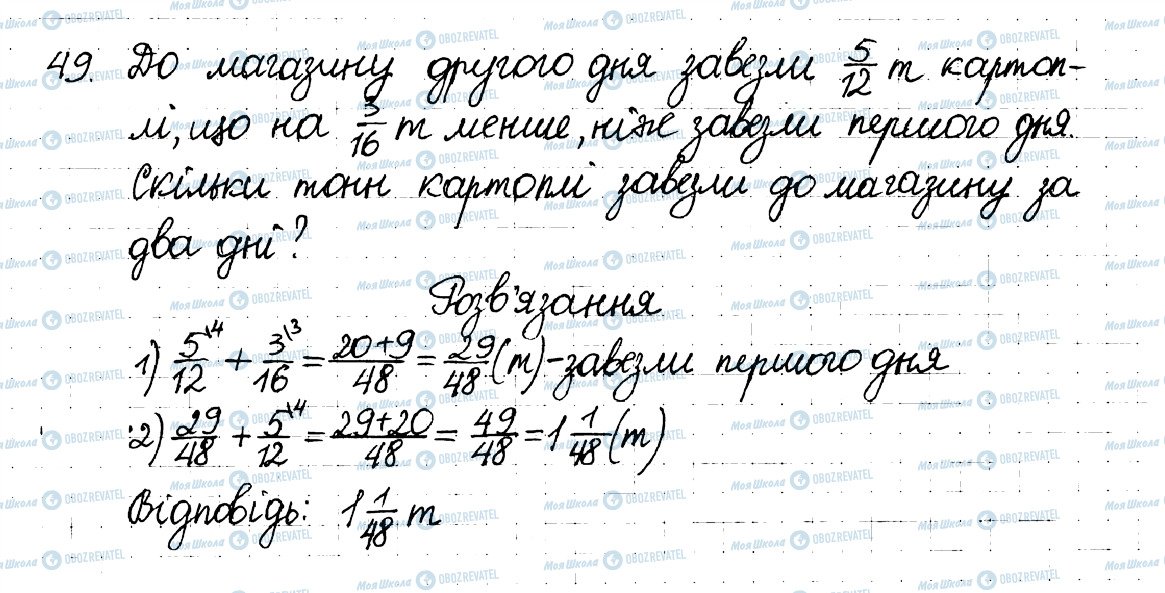 49. До магазину другого дня завезли 5/12 т картоп-
лі, що на 3/16 т менше, ніж завезли першого дня.
Скільки тонн картоплі завезли до магазину за
два дні?
Розв'язання
1) 5\4/12 + 3\3/16 = 20+9/48 = 29/48 (т) - завезли першого дня
2) 29/48 + 5\4/12 = 29+20/48 = 49/48 = 1 1/48 (т)
Відповідь: 1 1/48 т
Моя Школа OBOZREVATEL